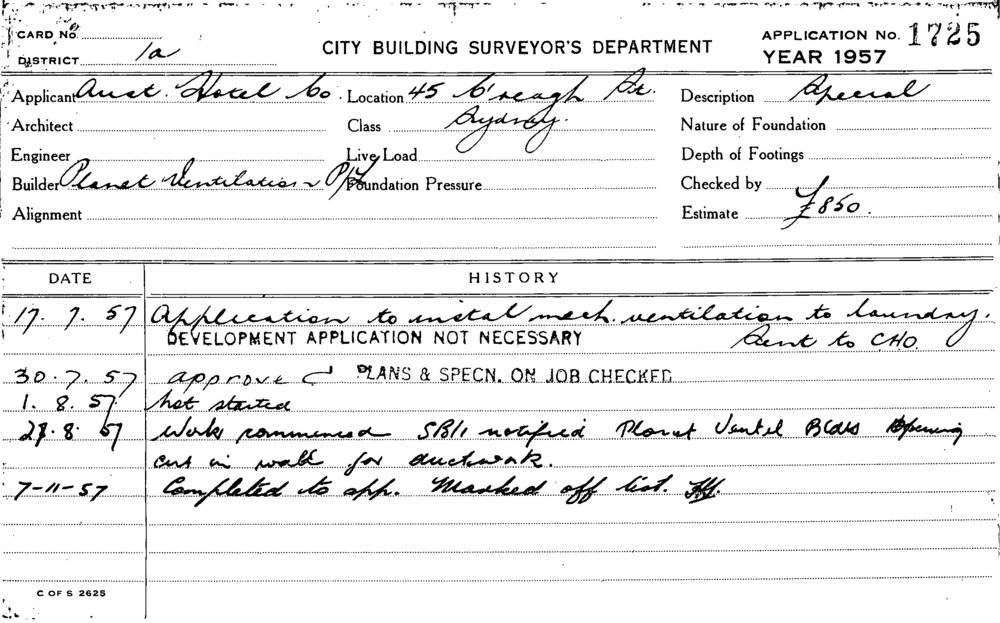 CARD No
DISTRICT 1a
CITY BUILDING SURVEYOR'S DEPARTMENT
APPLICATION No. 1725
YEAR 1957
Applicant Aust. Hotel Co. Location 45 C'reagh St. Description Special
Architect Class Sydney. Nature of Foundation
Engineer Live Load Depth of Footings
Builder Planet Ventilation P/L Foundation Pressure Checked by
Alignment Estimate £850.
DATE HISTORY
17. 7. 57 Application to instal mech. ventilation to laundry.
DEVELOPMENT APPLICATION NOT NECESSARY Sent to CHO.
30. 7. 57 approved PLANS & SPECN. ON JOB CHECKED
1. 8. 57 Not started
8. 57 Work commenced notified Planet Ventil Opening
cut in wall for ductwork.
7-11-57 Completed to app. Marked off list.
C OF S 2625